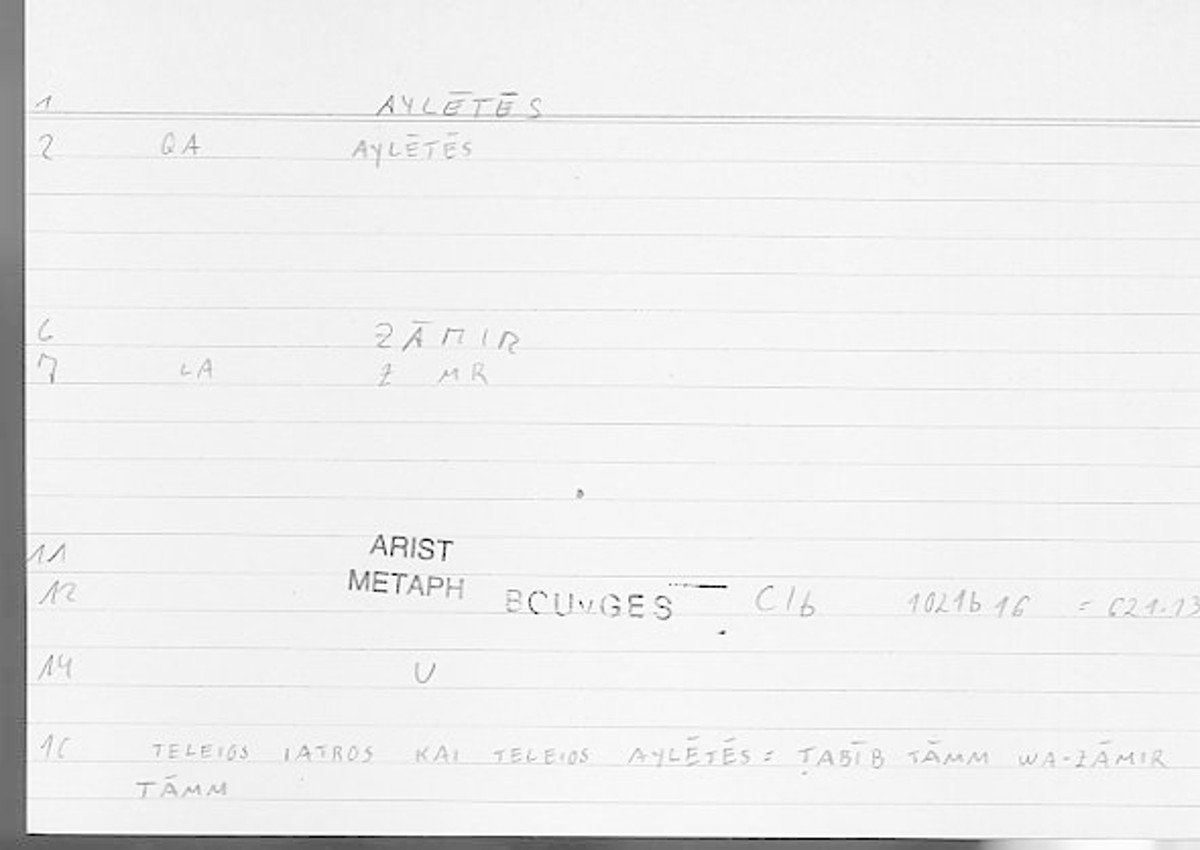 1 AYLĒTĒS
2 QA AYLĒTĒS
6 ZĀMIR
7 LA Z MR
11 ARIST
12 METAPH BOUYGES C1b 1021b16 = 621.13
14 U
16 TELEIOS IATROS KAI TELEIOS AYLĒTĒS = ṬABĪB TĀMM WA-ZĀMIR
TĀMM